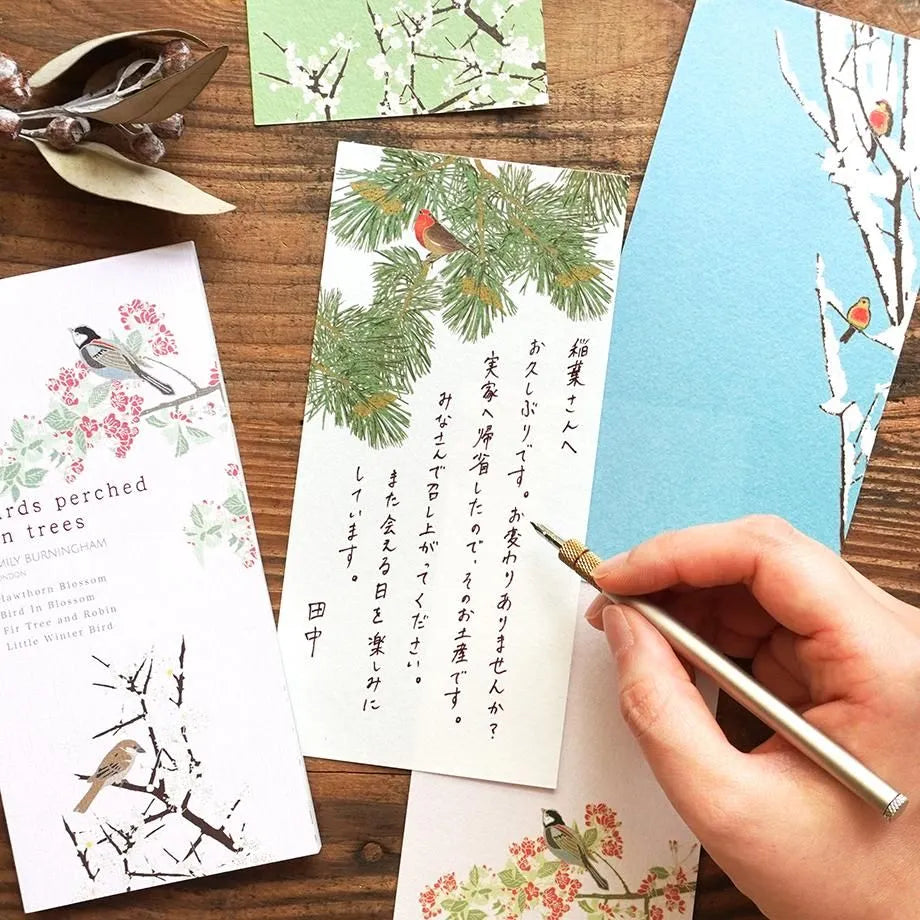 稲葉さんへ
お久しぶりです。お変わりありませんか?
実家へ帰省したので、そのお土産です。
みなさんで召し上がってください。
また会える日を楽しみに
しています。
田中
perched
trees
BURNINGHAM
Hawthorn Blossom
Bird In Blossom
Fir Tree and Robin
Little Winter Bird